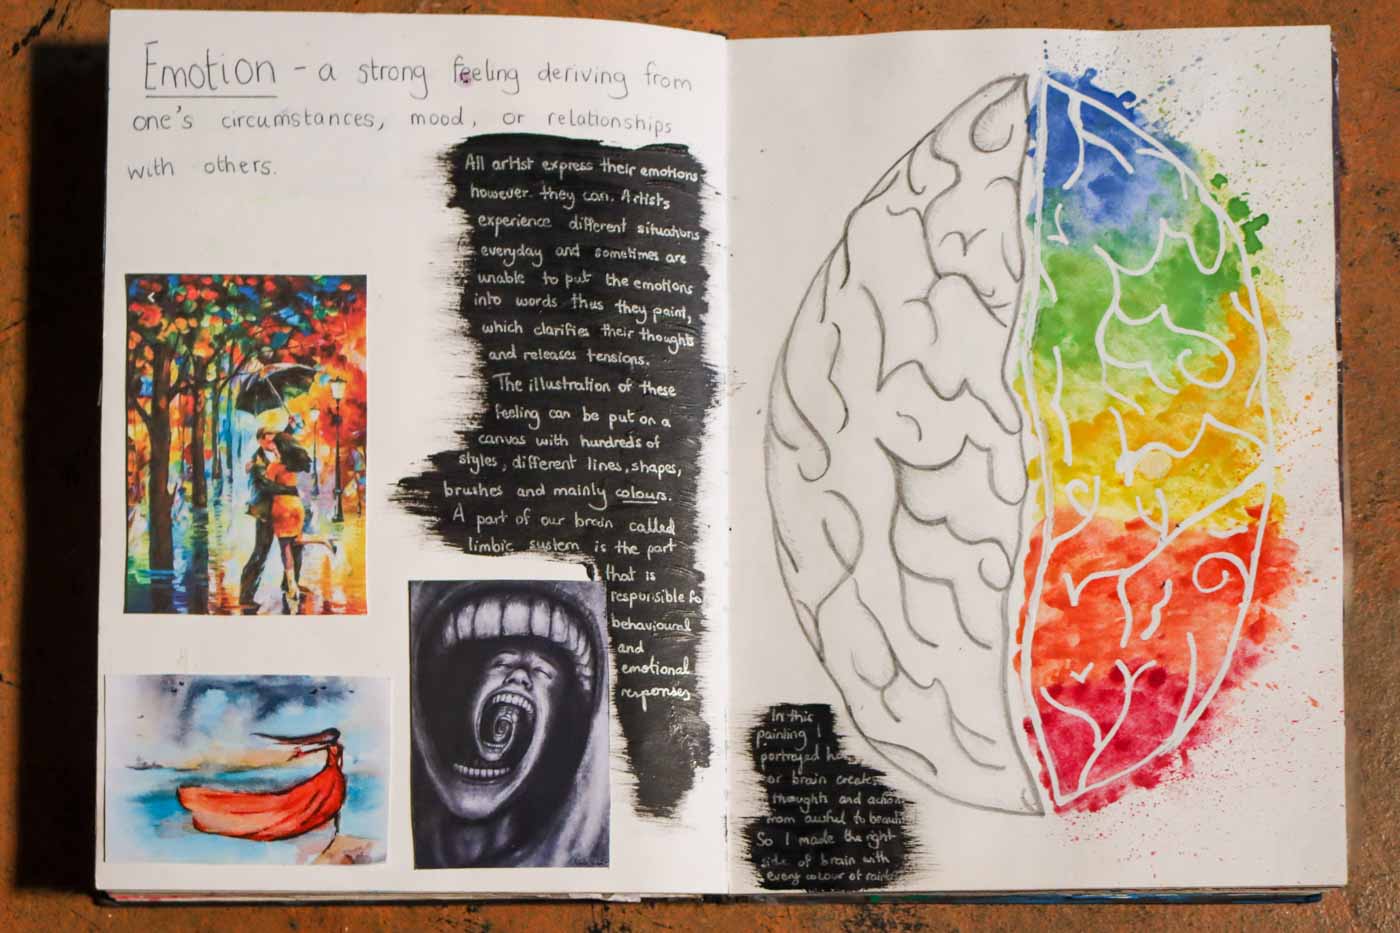 Emotion - a strong feeling deriving from
one's circumstances, mood, or relationships
with others.
All artist express their emotions
however they can. Artists
experience different situations
everyday and sometimes are
unable to put the emotions
into words thus they paint,
which clarifies their thoughts
and releases tensions.
The illustration of these
feeling can be put on a
canvas with hundreds of
styles, different lines, shapes,
brushes and mainly colours.
A part of our brain called
limbic system is the part
that is
responsible fo
behavioural
and
emotional
responses
In this
painting I
portrayed
or brain create
thoughts and action
from awful to beauti
So I made the right
side of brain with
every colour of rainb